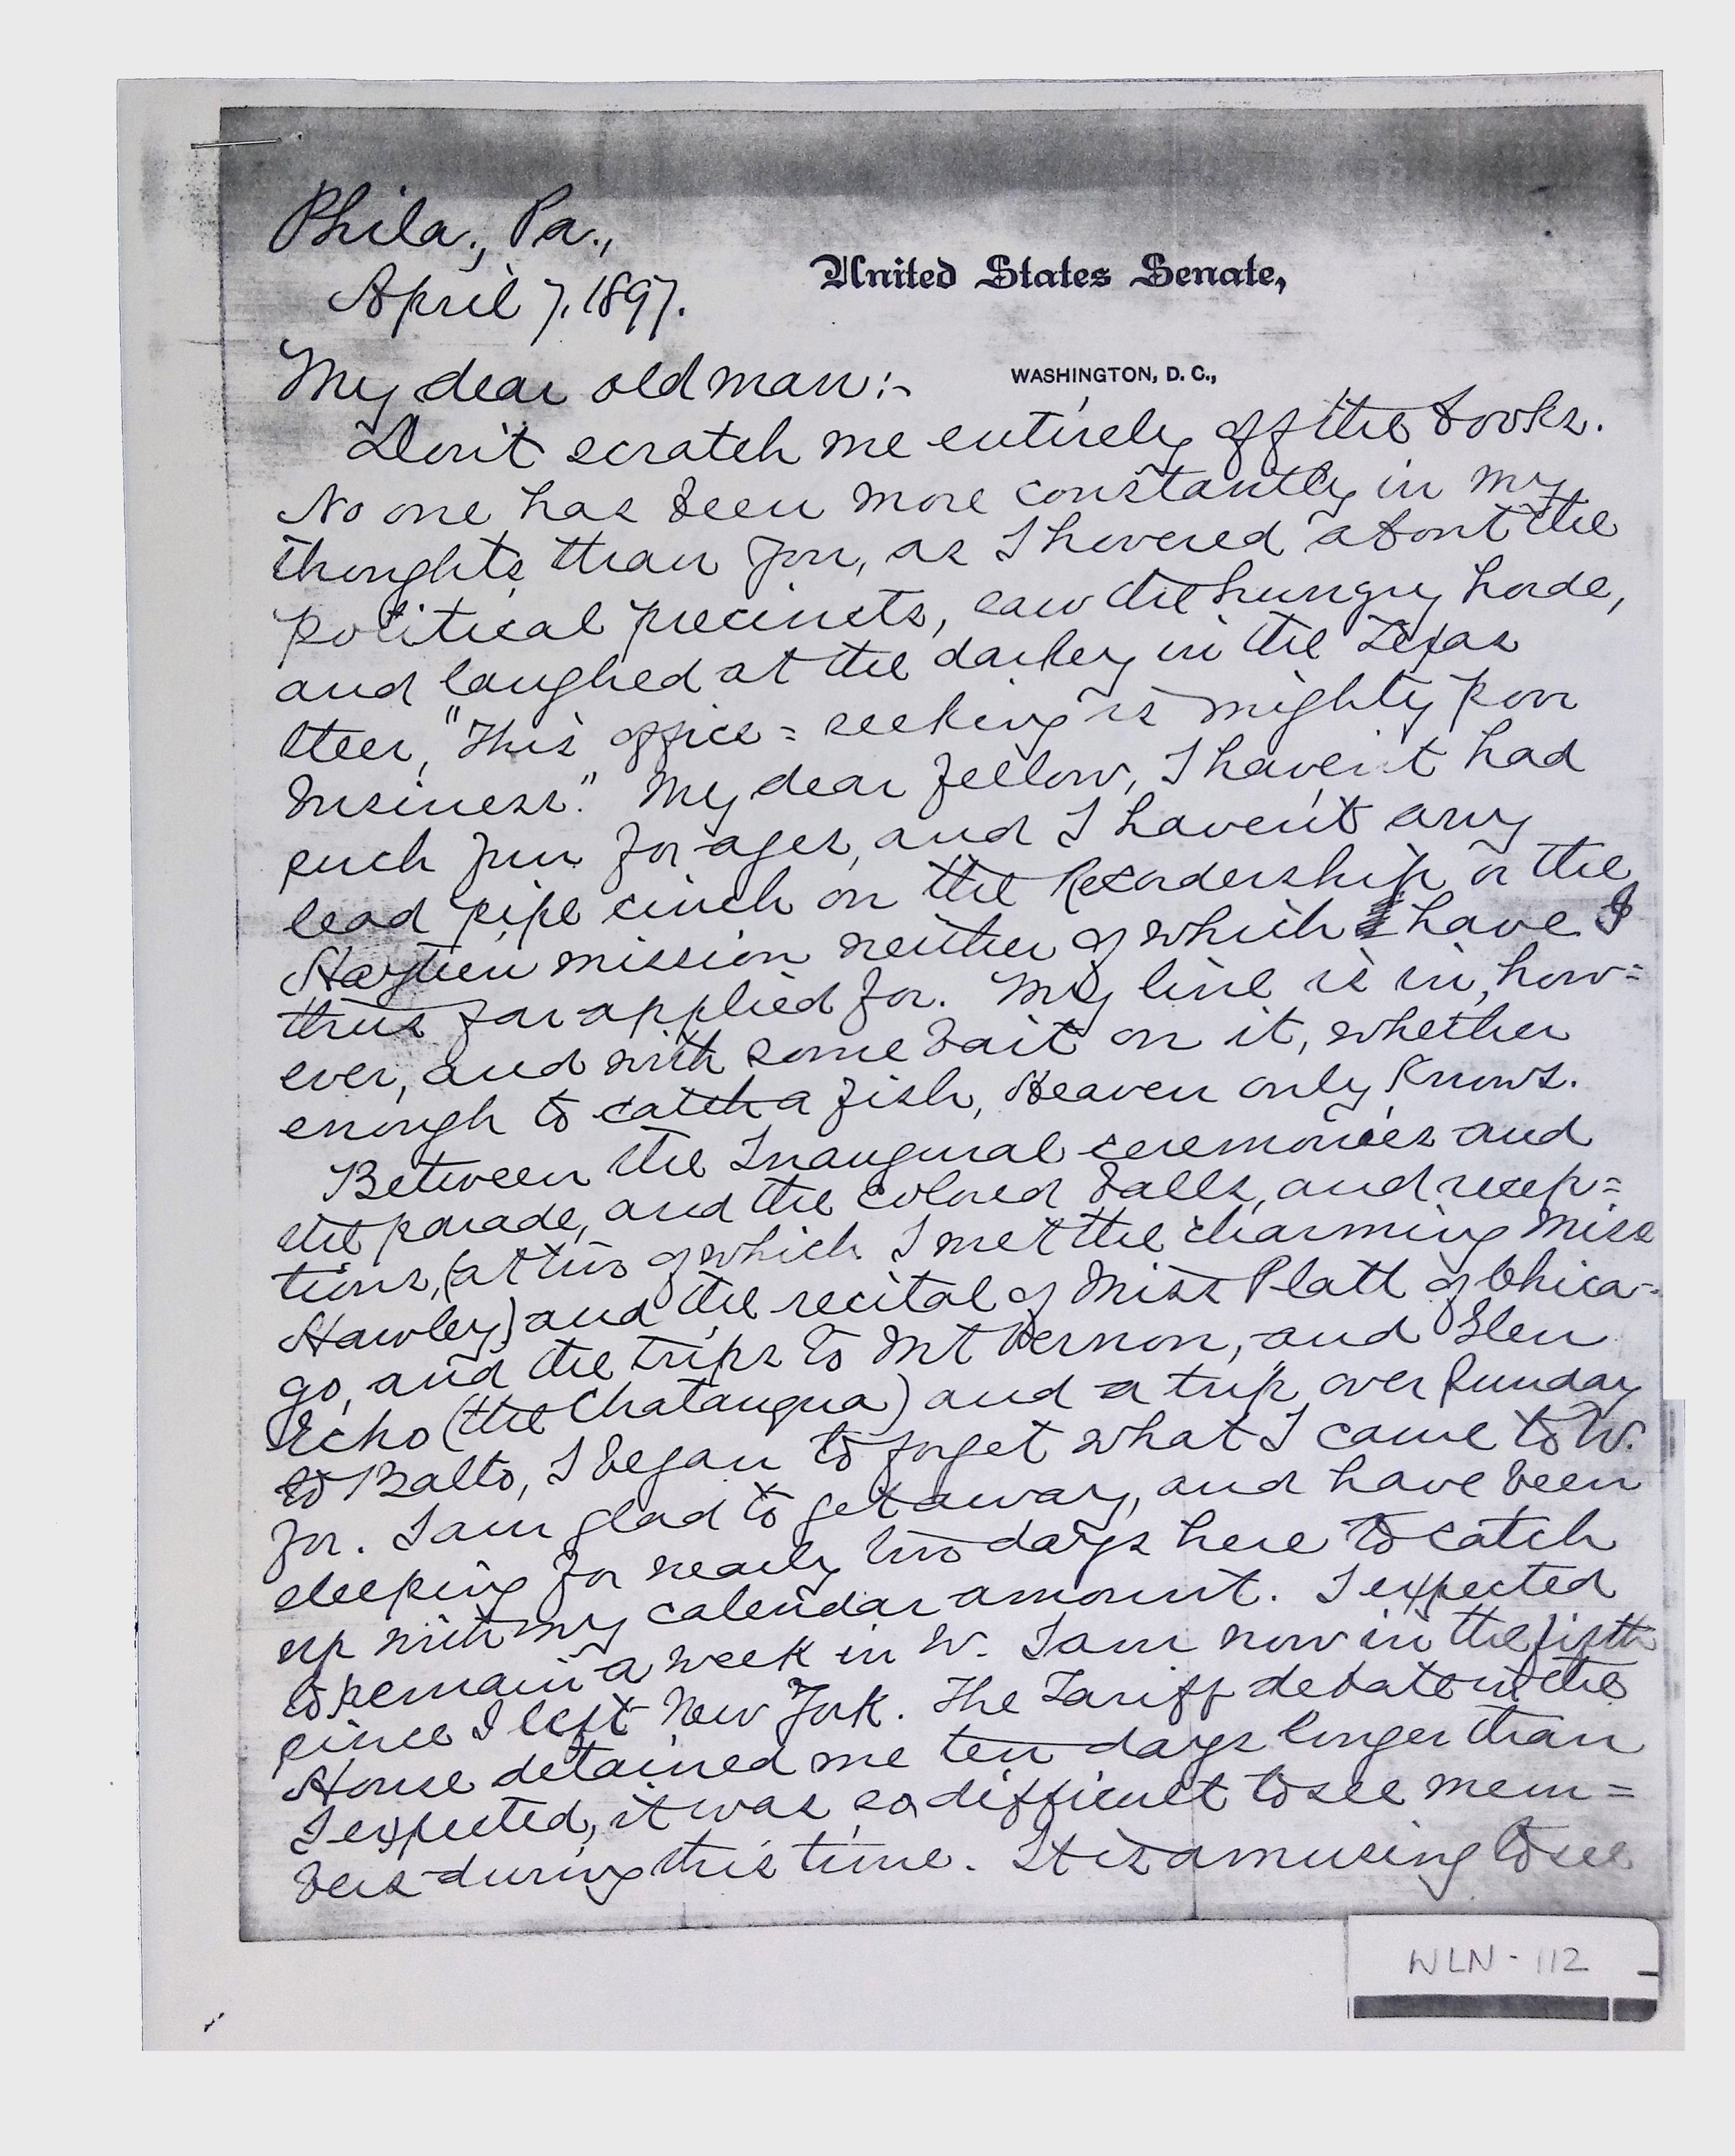 Phila., Pa.,
April 7, 1897.
United States Senate,
WASHINGTON, D. C.,
My dear old man:-
Don't scratch me entirely off the books.
No one has been more constantly in my
thoughts than you, as I hovered about the
political precincts, saw the hungry horde,
and laughed at the darkey in the Texas
Steer, "This office=seeking is mighty poor
business." My dear fellow, I haven't had
such fun for ages, and I haven't any
lead pipe cinch on the Recordership or the
Haytien mission neither of which have I
thus far applied for. My line is in, how=
ever, and with some bait on it, whether
enough to catch a fish, Heaven only knows.
Between the Inaugural ceremonies and
the parade, and the colored balls, and recep=
tions, (at two of which I met the charming Miss
Hawley) and the recital of Miss Platt of Chica-
go, and the trips to Mt Vernon, and Glen
Echo (the Chatauqua) and a trip over Sunday
to Balto, I began to forget what I came to W.
for. I am glad to get away, and have been
sleeping for nearly two days here to catch
up with my calendar amount. I expected
to remain a week in W. I am now in the fifth
since I left New York. The Tariff debate in the
House detained me ten days longer than
I expected, it was so difficult to see mem=
bers during this time. It is amusing to see
WLN-112